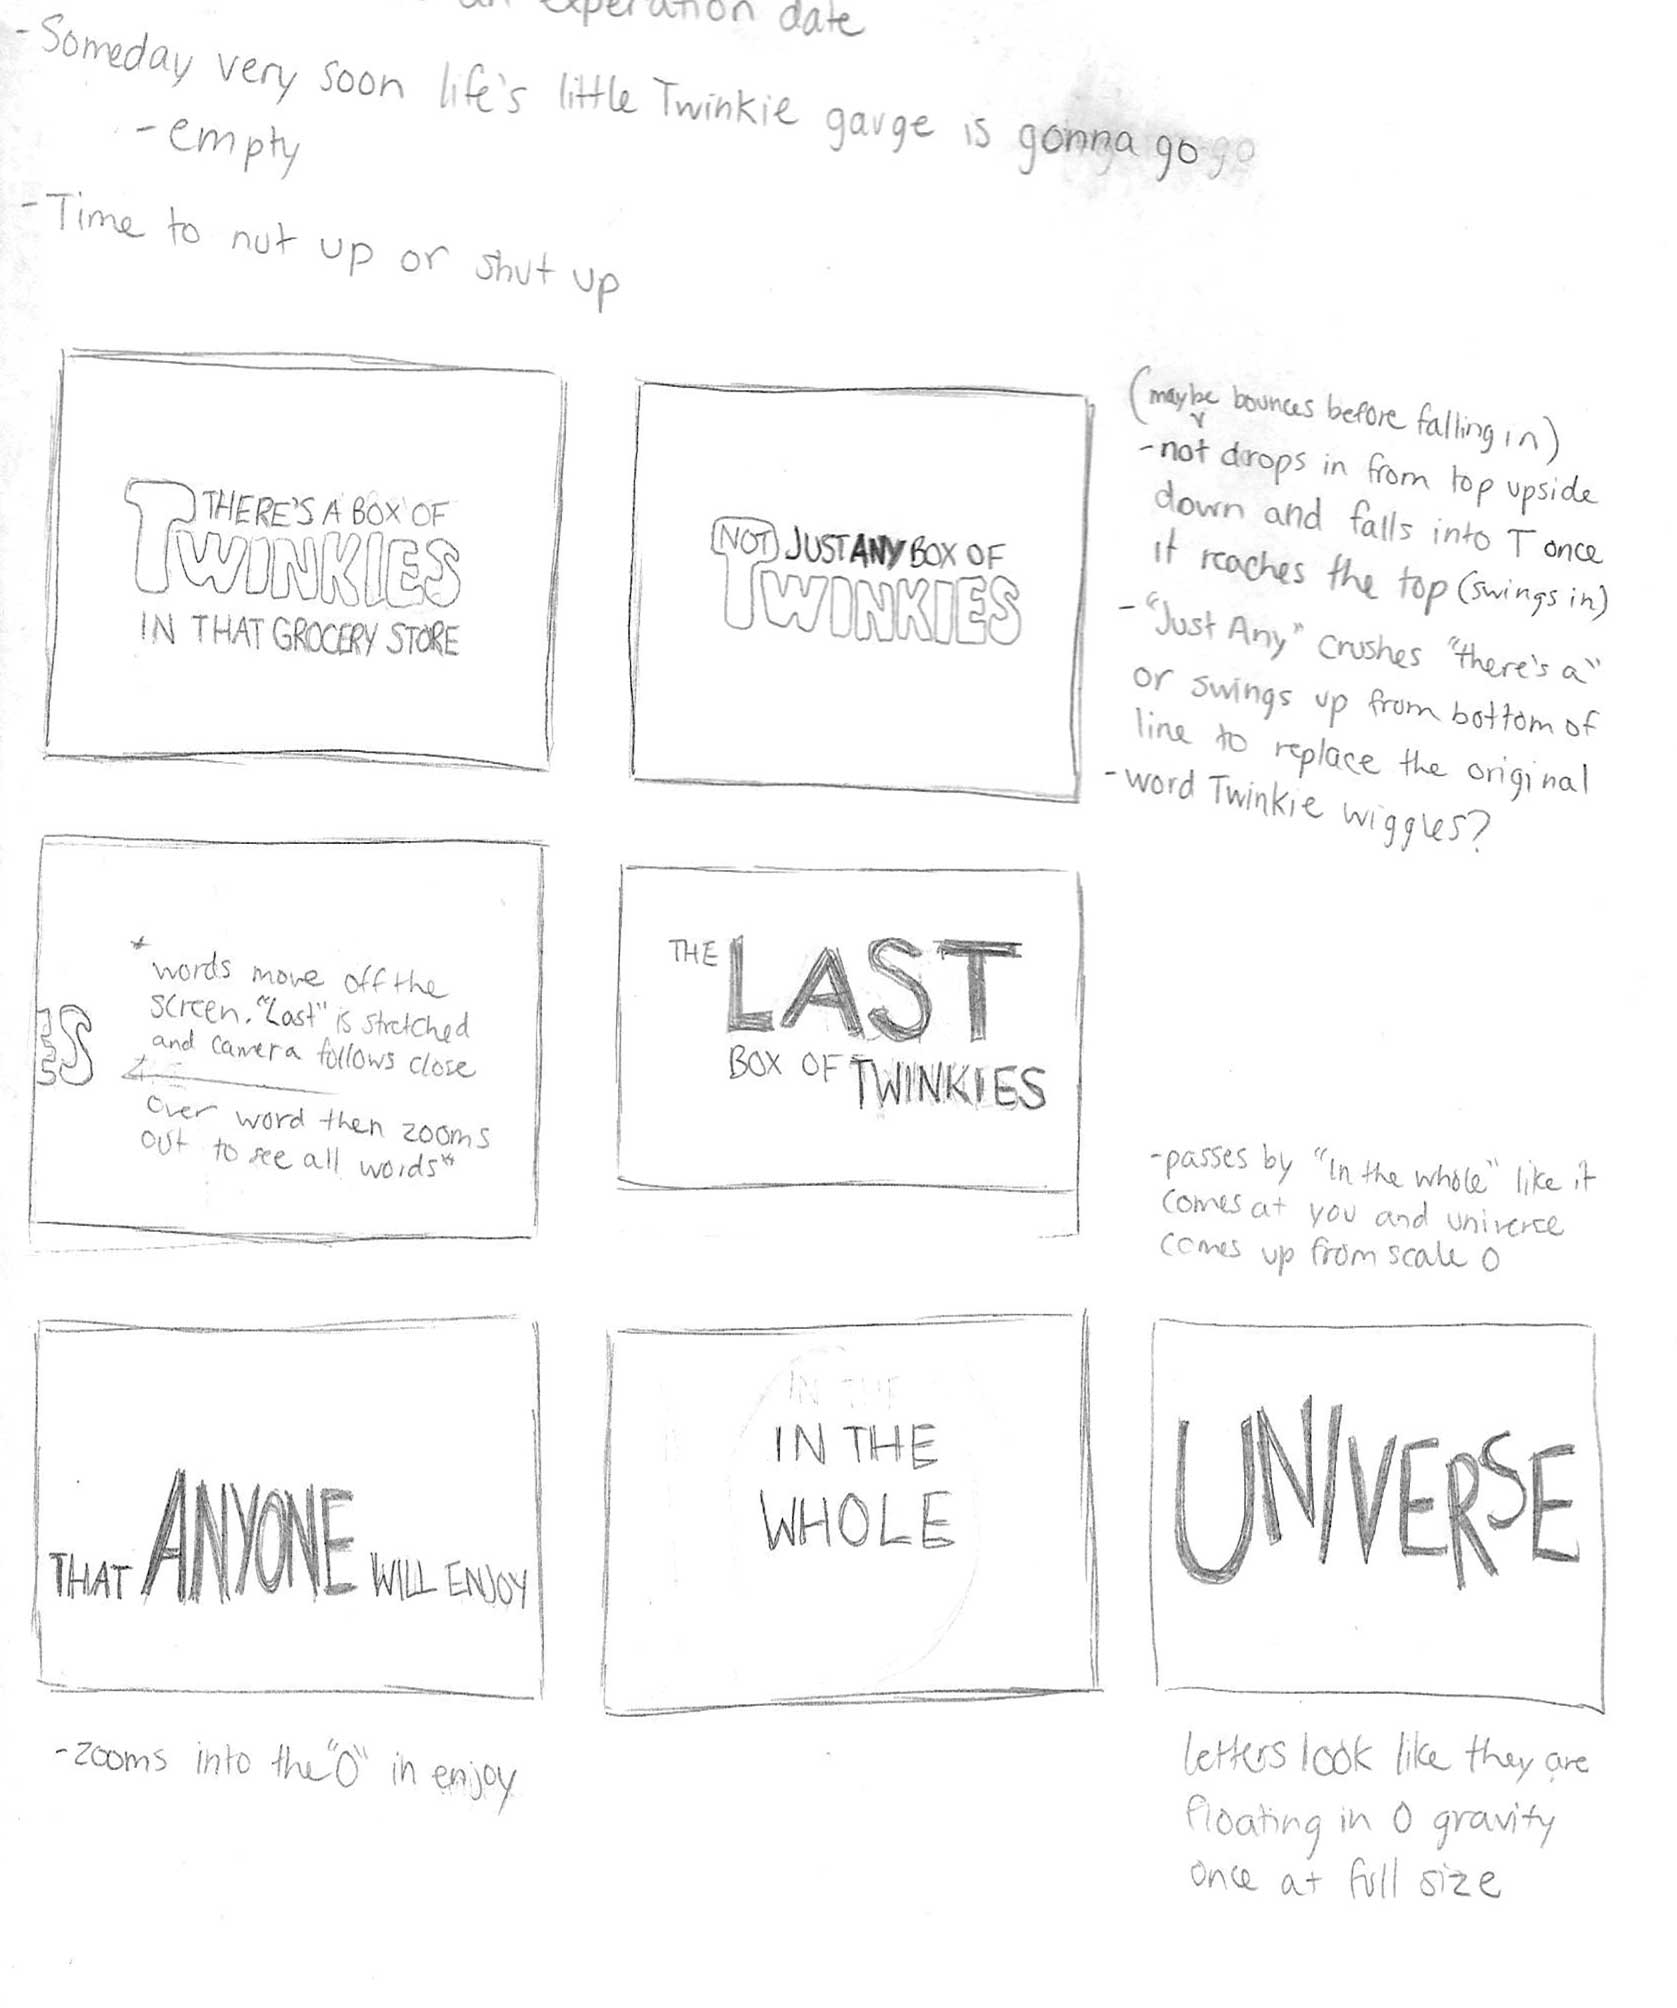 an experation date
-Someday very soon life's little Twinkie gauge is gonna go go
-empty
-Time to nut up or shut up
THERE'S A BOX OF
TWINKIES
IN THAT GROCERY STORE
NOT JUST ANY BOX OF
TWINKIES
(maybe bounces before falling in)
-not drops in from top upside
down and falls into T once
it reaches the top (swings in)
-"Just Any" crushes "there's a"
or swings up from bottom of
line to replace the original
-word Twinkie wiggles?
ES
*words move off the
screen. "Last" is stretched
and camera follows close
over word then zooms
out to see all words*
THE LAST
BOX OF TWINKIES
-passes by "in the whole" like it
comes at you and universe
comes up from scale 0
THAT ANYONE WILL ENJOY
IN THE
IN THE
WHOLE
UNIVERSE
-zooms into the "O" in enjoy
letters look like they are
floating in 0 gravity
once at full size